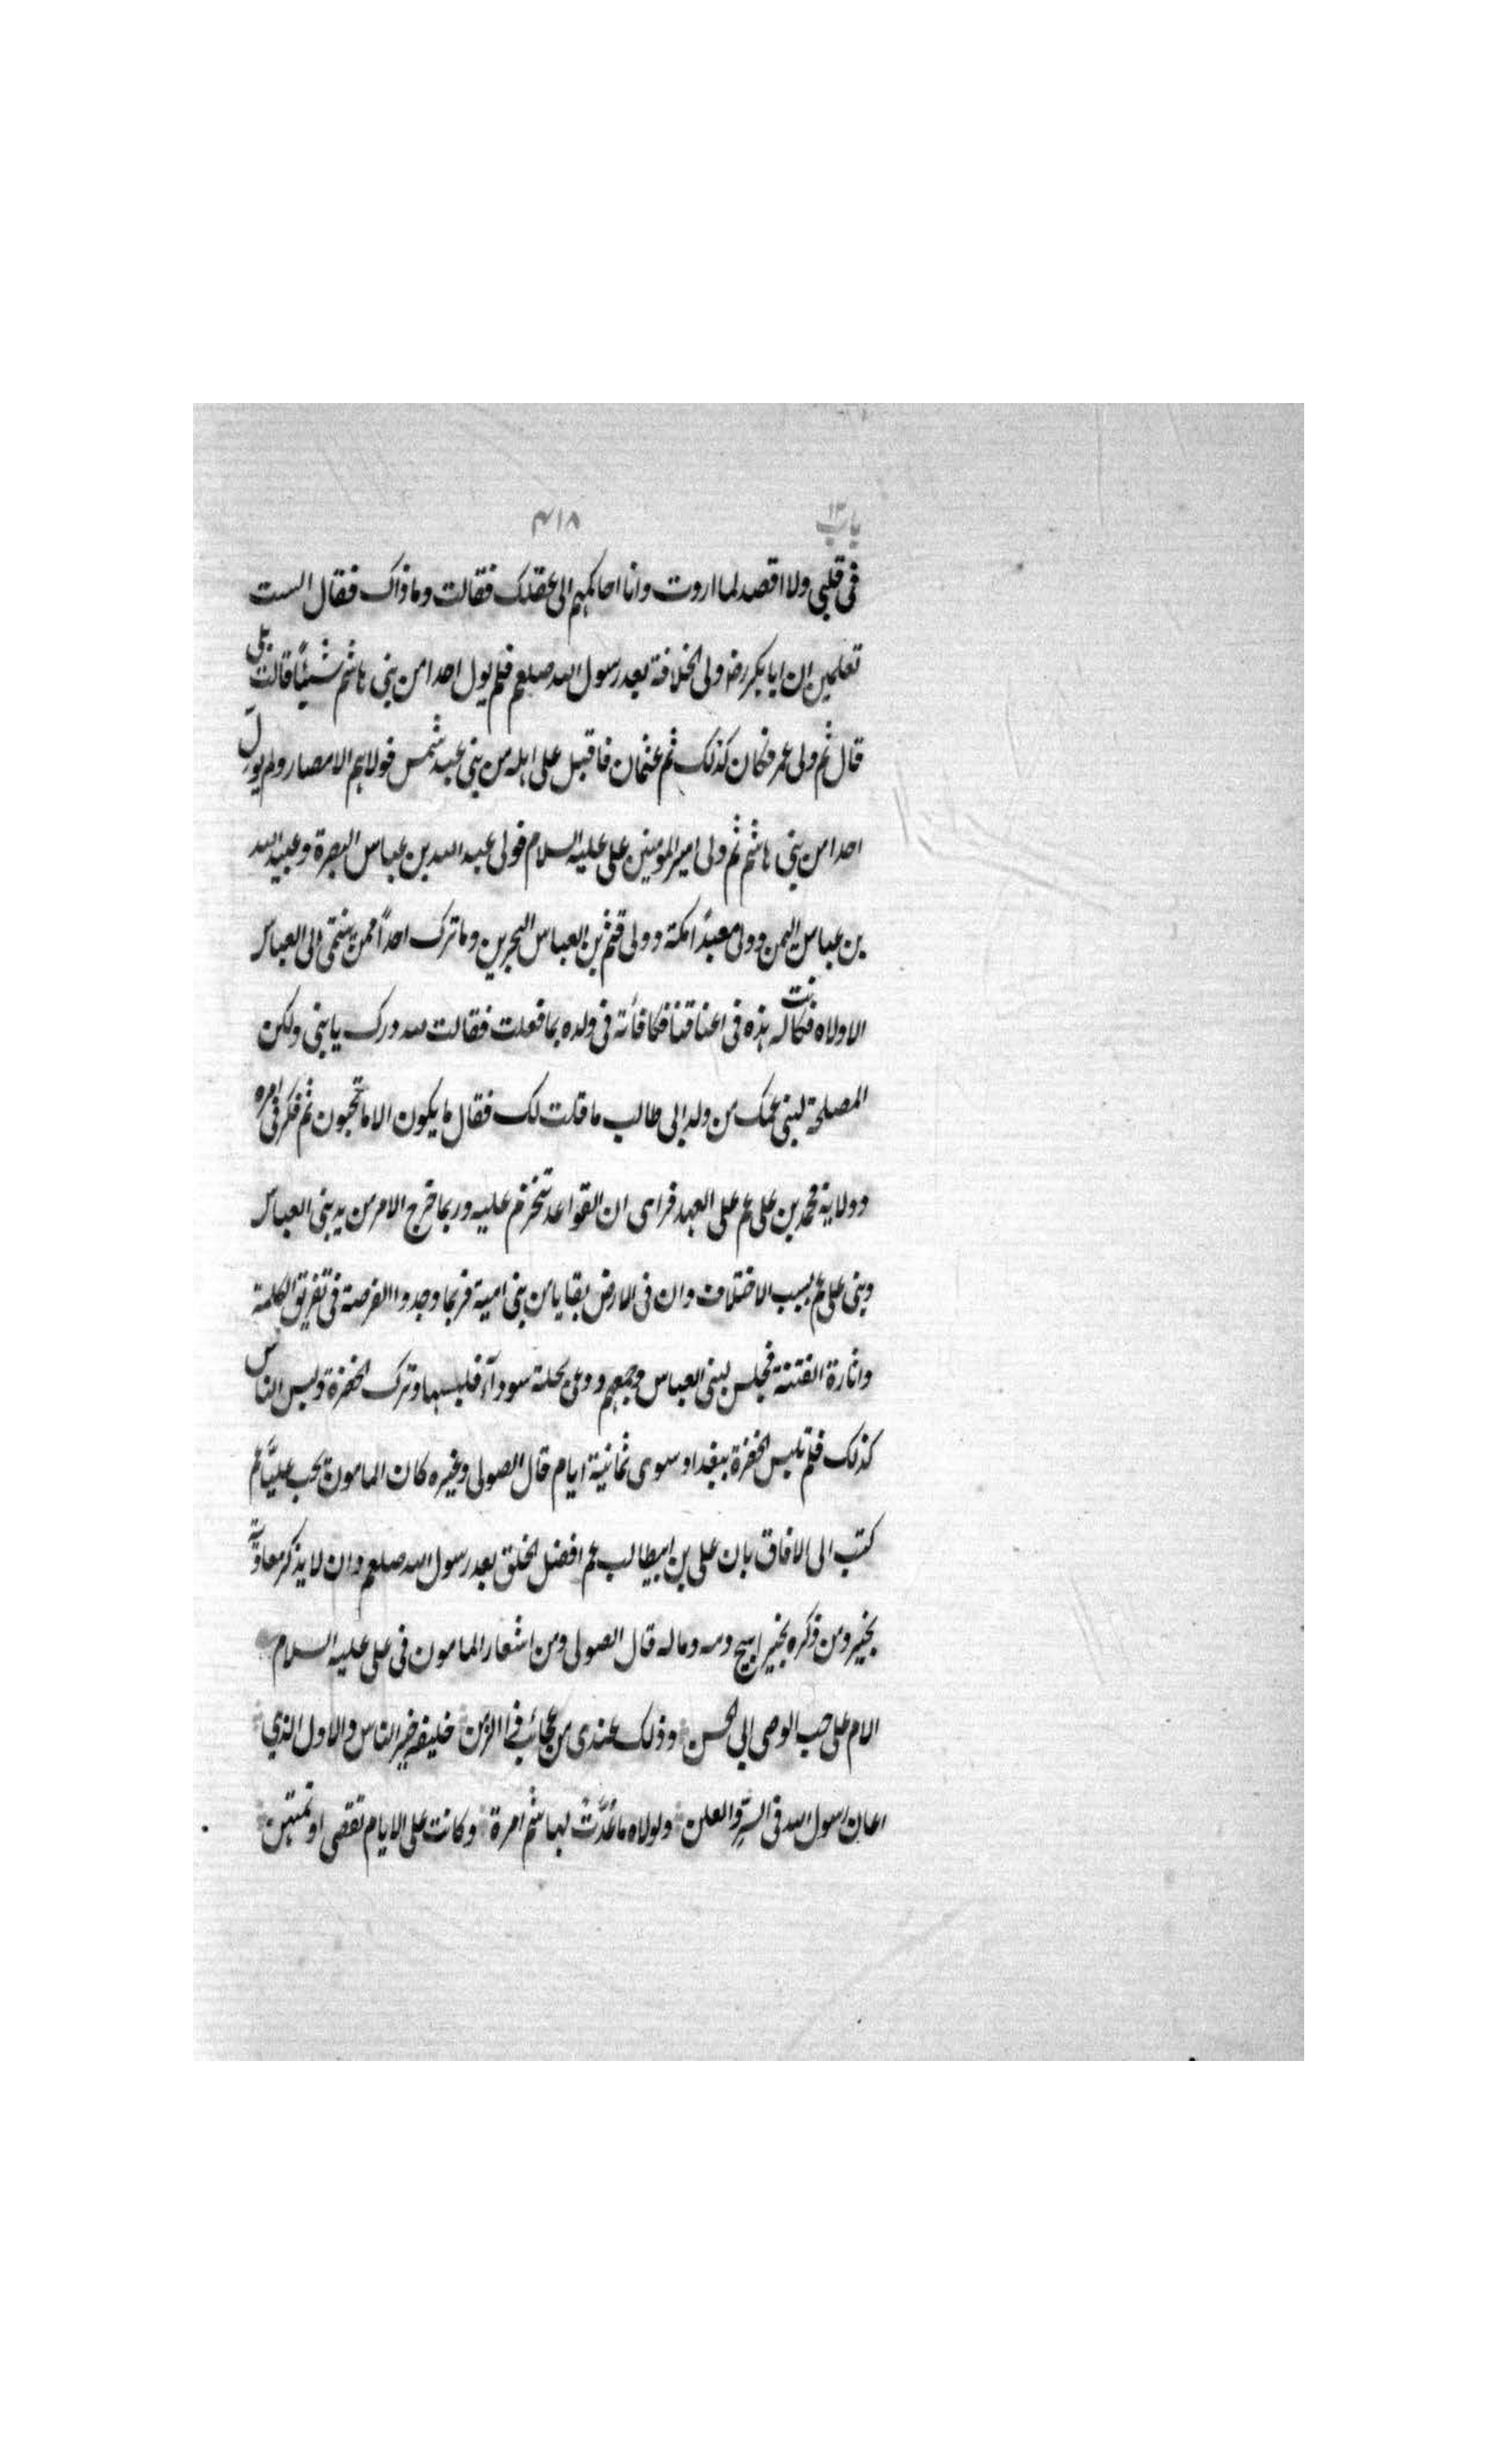 باب ١٣ ٤١٨
فى قلبى ولا اقصد لما اروت وانا احاكمهم الى عقلك فقالت وما ذاك فقال الست
تعلمين ان ابا بكر رضا ولى الخلافة بعد رسول الله صلعم فلم يول احدا من بنى هاشم شيئًا قالت بلى
قال ثم ولى عمر فكان كذلك ثم عثمان فاقبل على اهله من بنى عبد شمس فولاهم الامصار ولم يول
احدا من بنى هاشم ثم ولى امير المؤمنين على عليه السلام فولى عبد الله بن عباس البصرة وعبيد الله
بن عباس اليمن وولى معبدًا مكة وولى قثم بن العباس البحرين وما ترك احدًا ممن ينتمى الى العباس
الا ولاه فكانت له هذه فى اعناقنا فكافأته فى ولده بما فعلت فقالت لله درك يا بنى ولكن
المصلحة لبنى عمك من ولد ابى طالب ما قلت لك فقال ما يكون الا ما تحبون ثم فكر فى امره
وولاية محمد بن على عم على العهد فراى ان القواعد تنخرم عليه وربما خرج الامر من يد بنى العباس
وبنى على عم بسبب الاختلاف وان فى الارض بقايا من بنى امية فربما وجدوا الفرصة فى تفريق الكلمة
واثارة الفتنة فجلس لبنى العباس وجمعهم ودعى بحلة سوداء فلبسها وترك الخضرة ولبس الناس
كذلك فلم تلبس الخضرة ببغداد سوى ثمانية ايام قال الصولى وغيره كان المامون يحب عليًّا عم
كتب الى الافاق بان على بن ابيطالب عم افضل الخلق بعد رسول الله صلعم وان لا يذكر معاوية
بخير ومن ذكره بخير ابيح دمه وماله قال الصولى ومن اشعار المامون فى على عليه السلام
الام على حب الوصى ابي الحسن وذلك عندى من عجائب ذا الزمن خليفة خير الناس والاول الذي
اعان رسول الله فى السرّ والعلن ولولاه ما عُدَّتْ لهاشم امرة وكانت على الايام تقصى او تمتهن